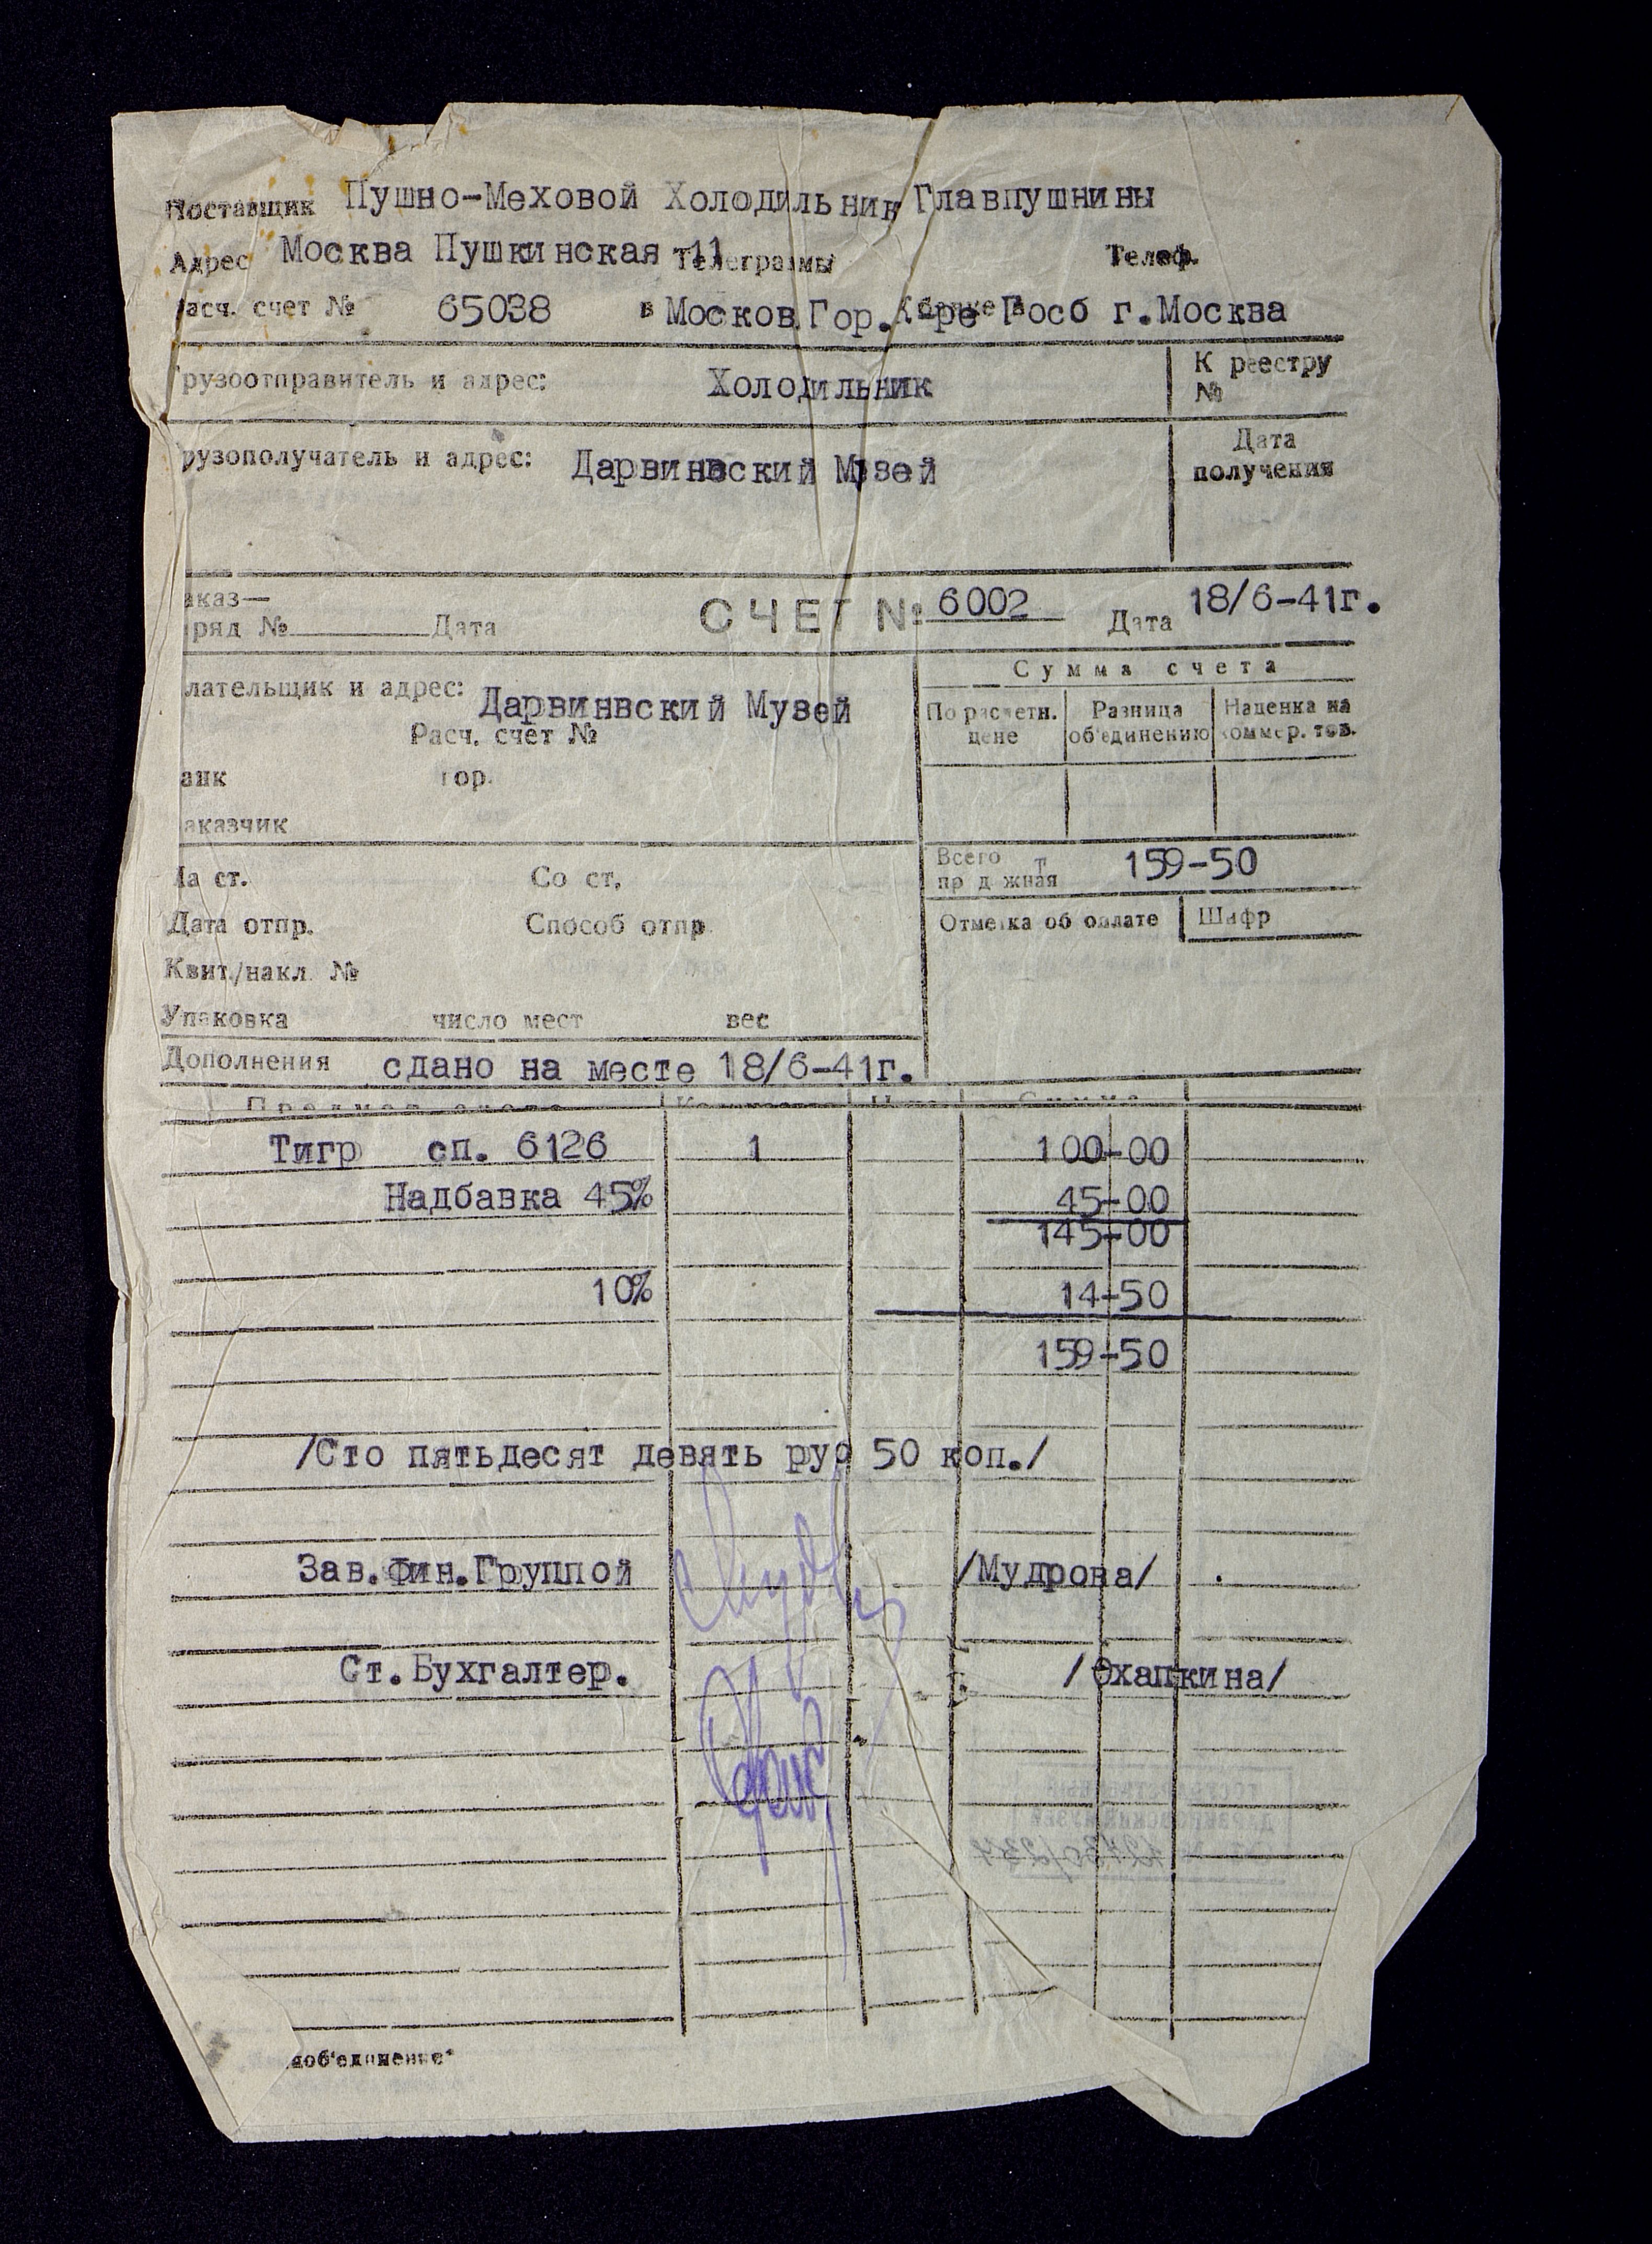 Поставщик Пушно-Меховой Холодильник Главпушнины
Адрес Москва Пушкинская 11 Телеграммы Телеф.
асч. счет № 65038 в Москов.Гор. К-ре Госб г.Москва
рузоотправитель и адрес: Холодильник
К реестру
№
рузополучатель и адрес: Дарвинвский Музей
Дата
получения
аказ—
ряд № Дата
СЧЕТ № 6002 Дата 18/6-41г.
лательщик и адрес: Дарвинвский Музей
Расч. счет №
анк гор.
аказчик
Сумма счета
По расчетн.
цене
Разница
об'единению
Наценка на
коммер. тов.
Всего т
пр д жная 159-50
Отметка об оплате Шифр
На ст. Со ст.
Дата отпр. Способ отпр
Квит./накл. №
Упаковка число мест вес
Дополнения сдано на месте 18/6-41г.
Тигр сп. 6126 1 100-00
Надбавка 45% 45-00
145-00
10% 14-50
159-50
/Сто пятьдесят девять руб 50 коп./
Зав.Фин.Группой /Мудрова/
Ст.Бухгалтер. /Охапкина/
доб'единение"